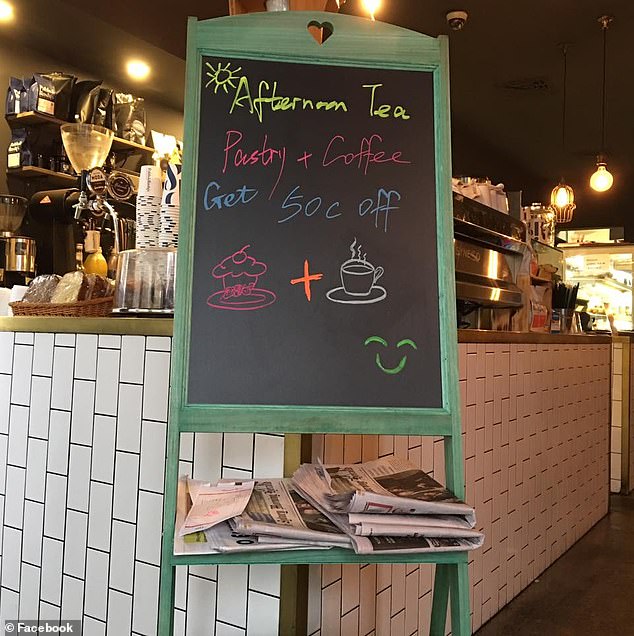 Afternoon Tea
Pastry + Coffee
Get 50c off
+
© Facebook